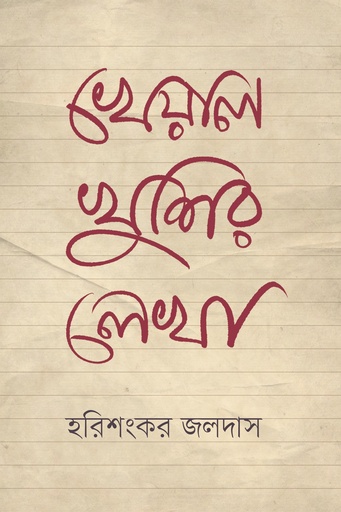 খেয়াল
খুশির
লেখা
হরিশংকর জলদাস